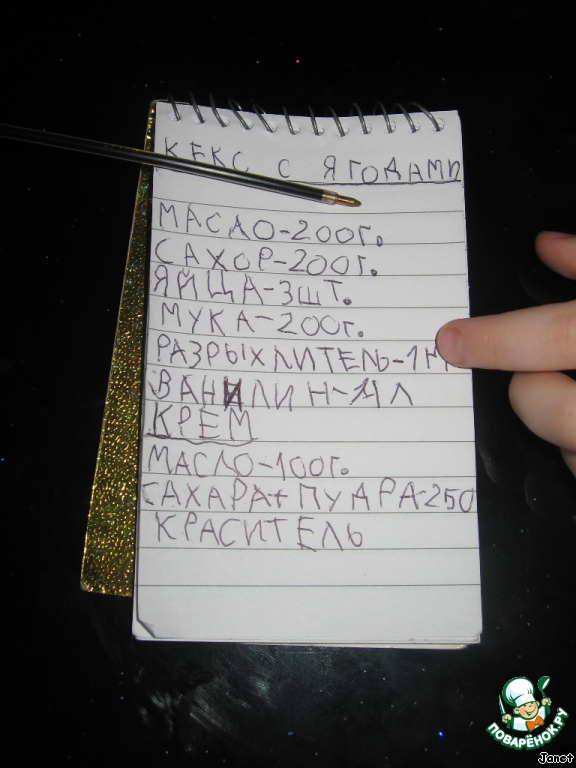 КЕКС С ЯГОДАМИ
МАСЛО-200г.
САХОР-200г.
ЯЙЦА-3шт.
МУКА-200г.
РАЗРЫХЛИТЕЛЬ-1
ВАНИЛИН-1ЧЛ
КРЕМ
МАСЛО-100г.
САХАРА+ПУДРА-250
КРАСИТЕЛЬ
ПОВАРЁНОК.РУ
Janet